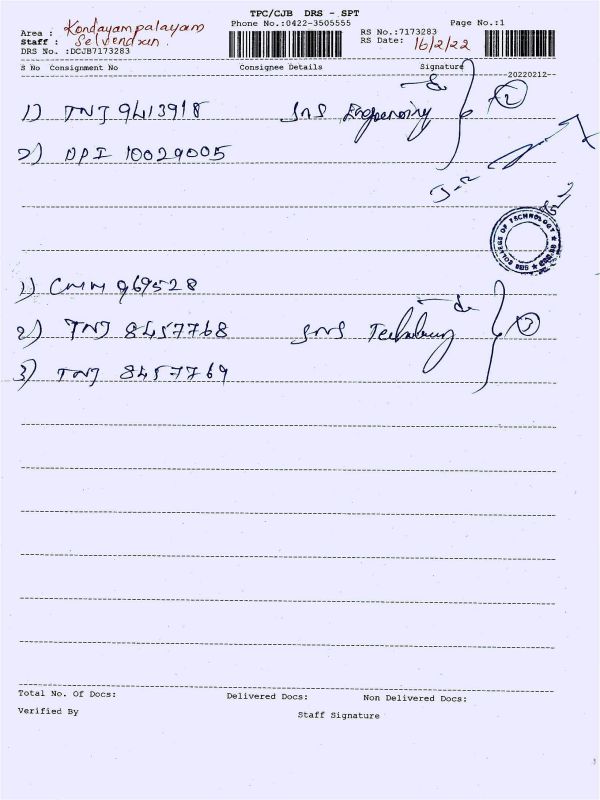 TPC/CJB DRS - SPT
Phone No.:0422-3505555
Page No.:1
Area : Kondayampalayam
Staff : Selvendran.
DRS No. :DCJB7173283
RS No.:7173283
RS Date: 16/2/22
S No Consignment No Consignee Details Signature
20220212
1) TNJ 9413918 SNS Engineering 2
2) DPI 10029005
COLLEGE OF TECHNOLOGY ★ SNS ★
1) CMM 969528
2) TNJ 8457768 SNS Technology 3
3) TNJ 8457769
Total No. Of Docs: Delivered Docs: Non Delivered Docs:
Verified By Staff Signature